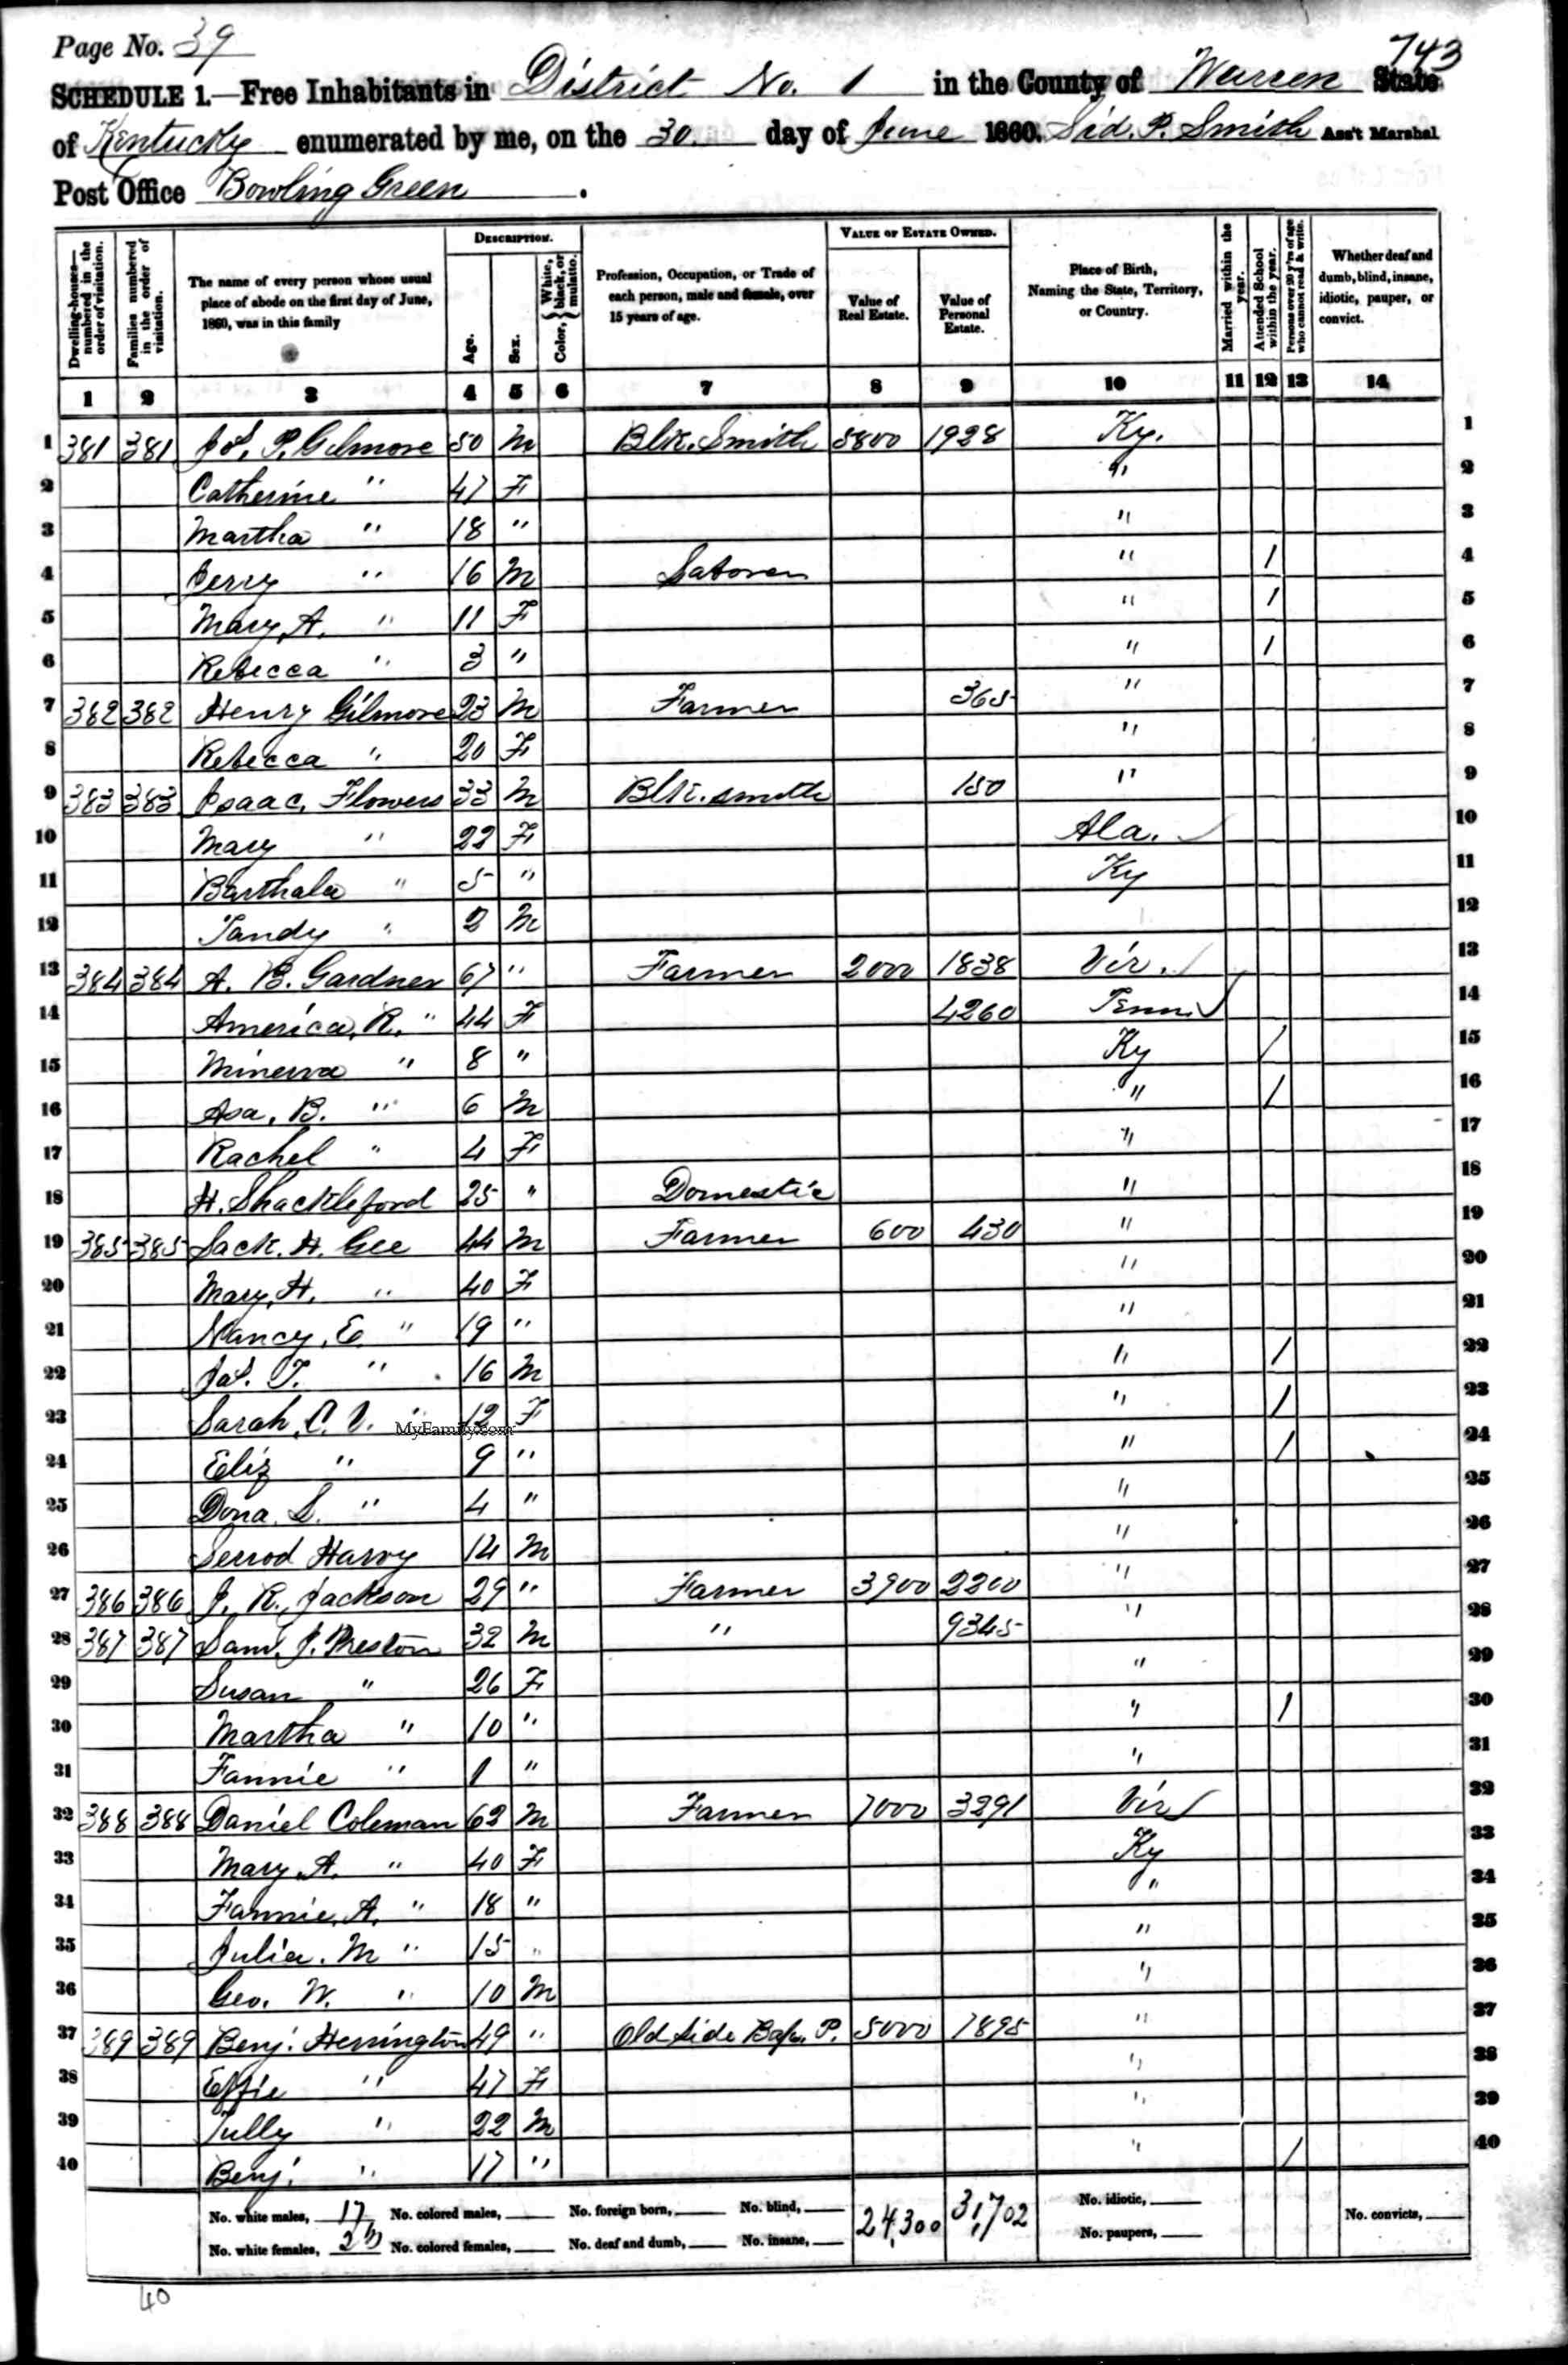 Page No. 39
743
SCHEDULE 1.—Free Inhabitants in District No. 1 in the County of Warren State
of Kentucky enumerated by me, on the 30. day of June 1860. Sid. P. Smith Ass't Marshal
Post Office Bowling Green .
Dwelling-houses—numbered in the order of visitation.
Families numbered in the order of visitation.
The name of every person whose usual place of abode on the first day of June, 1860, was in this family
DESCRIPTION.
Age.
Sex.
Color, {White, black, or mulatto.
Profession, Occupation, or Trade of each person, male and female, over 15 years of age.
VALUE OF ESTATE OWNED.
Value of Real Estate.
Value of Personal Estate.
Place of Birth, Naming the State, Territory, or Country.
Married within the year.
Attended School within the year.
Persons over 20 y'rs of age who cannot read & write.
Whether deaf and dumb, blind, insane, idiotic, pauper, or convict.
1 2 3 4 5 6 7 8 9 10 11 12 13 14
1 381 381 Js. P. Gilmore 50 M Blk. Smith 5800 1928 Ky. 1
2 Catherine " 47 F " 2
3 Martha " 18 " " 3
4 Jerry " 16 M Laborer " / 4
5 Mary, A. " 11 F " / 5
6 Rebecca " 3 " " / 6
7 382 382 Henry Gilmore 23 M Farmer 365 " 7
8 Rebecca " 20 F " 8
9 383 383 Isaac, Flowers 33 M Blk. smith 150 " 9
10 Mary " 22 F Ala. 10
11 Barthala " 5 " Ky 11
12 Tandy " 2 M 12
13 384 384 A. B. Gardner 67 " Farmer 2000 1838 Vir. 13
14 America, R. " 44 F 4260 Tenn. 14
15 Minerva " 8 " Ky / 15
16 Asa, B. " 6 M " / 16
17 Rachel " 4 F " 17
18 H. Shackleford 25 " Domestic " 18
19 385 385 Jack. H. Gee 44 M Farmer 600 430 " 19
20 Mary, H. " 40 F " 20
21 Nancy, E. " 19 " " 21
22 Jas. T. " 16 M " / 22
23 Sarah, C. V. " 12 F " / 23
MyFamily.com
24 Eliz " 9 " " / 24
25 Dona. S. " 4 " " 25
26 Serrod Harvy 14 M " 26
27 386 386 J. R. Jackson 29 " Farmer 3900 2200 " 27
28 387 387 Sam. J. Preston 32 M " 9345 " 28
29 Susan " 26 F " 29
30 Martha " 10 " " / 30
31 Fannie " 1 " " 31
32 388 388 Daniel Coleman 62 M Farmer 7000 3291 Vir 32
33 Mary, A. " 40 F Ky 33
34 Fannie, A. " 18 " " 34
35 Julia. M " 15 " " 35
36 Geo. W. " 10 M " 36
37 389 389 Benj. Herrington 49 " Old Side Bap. P. 5000 7895 " 37
38 Effie " 47 F " 38
39 Tully " 22 M " 39
40 Benj. " 17 " " / 40
No. white males, 17 No. colored males, No. foreign born, No. blind, 24,300 31,702 No. idiotic, No. convicts,
No. white females, 23 No. colored females, No. deaf and dumb, No. insane, No. paupers,
40